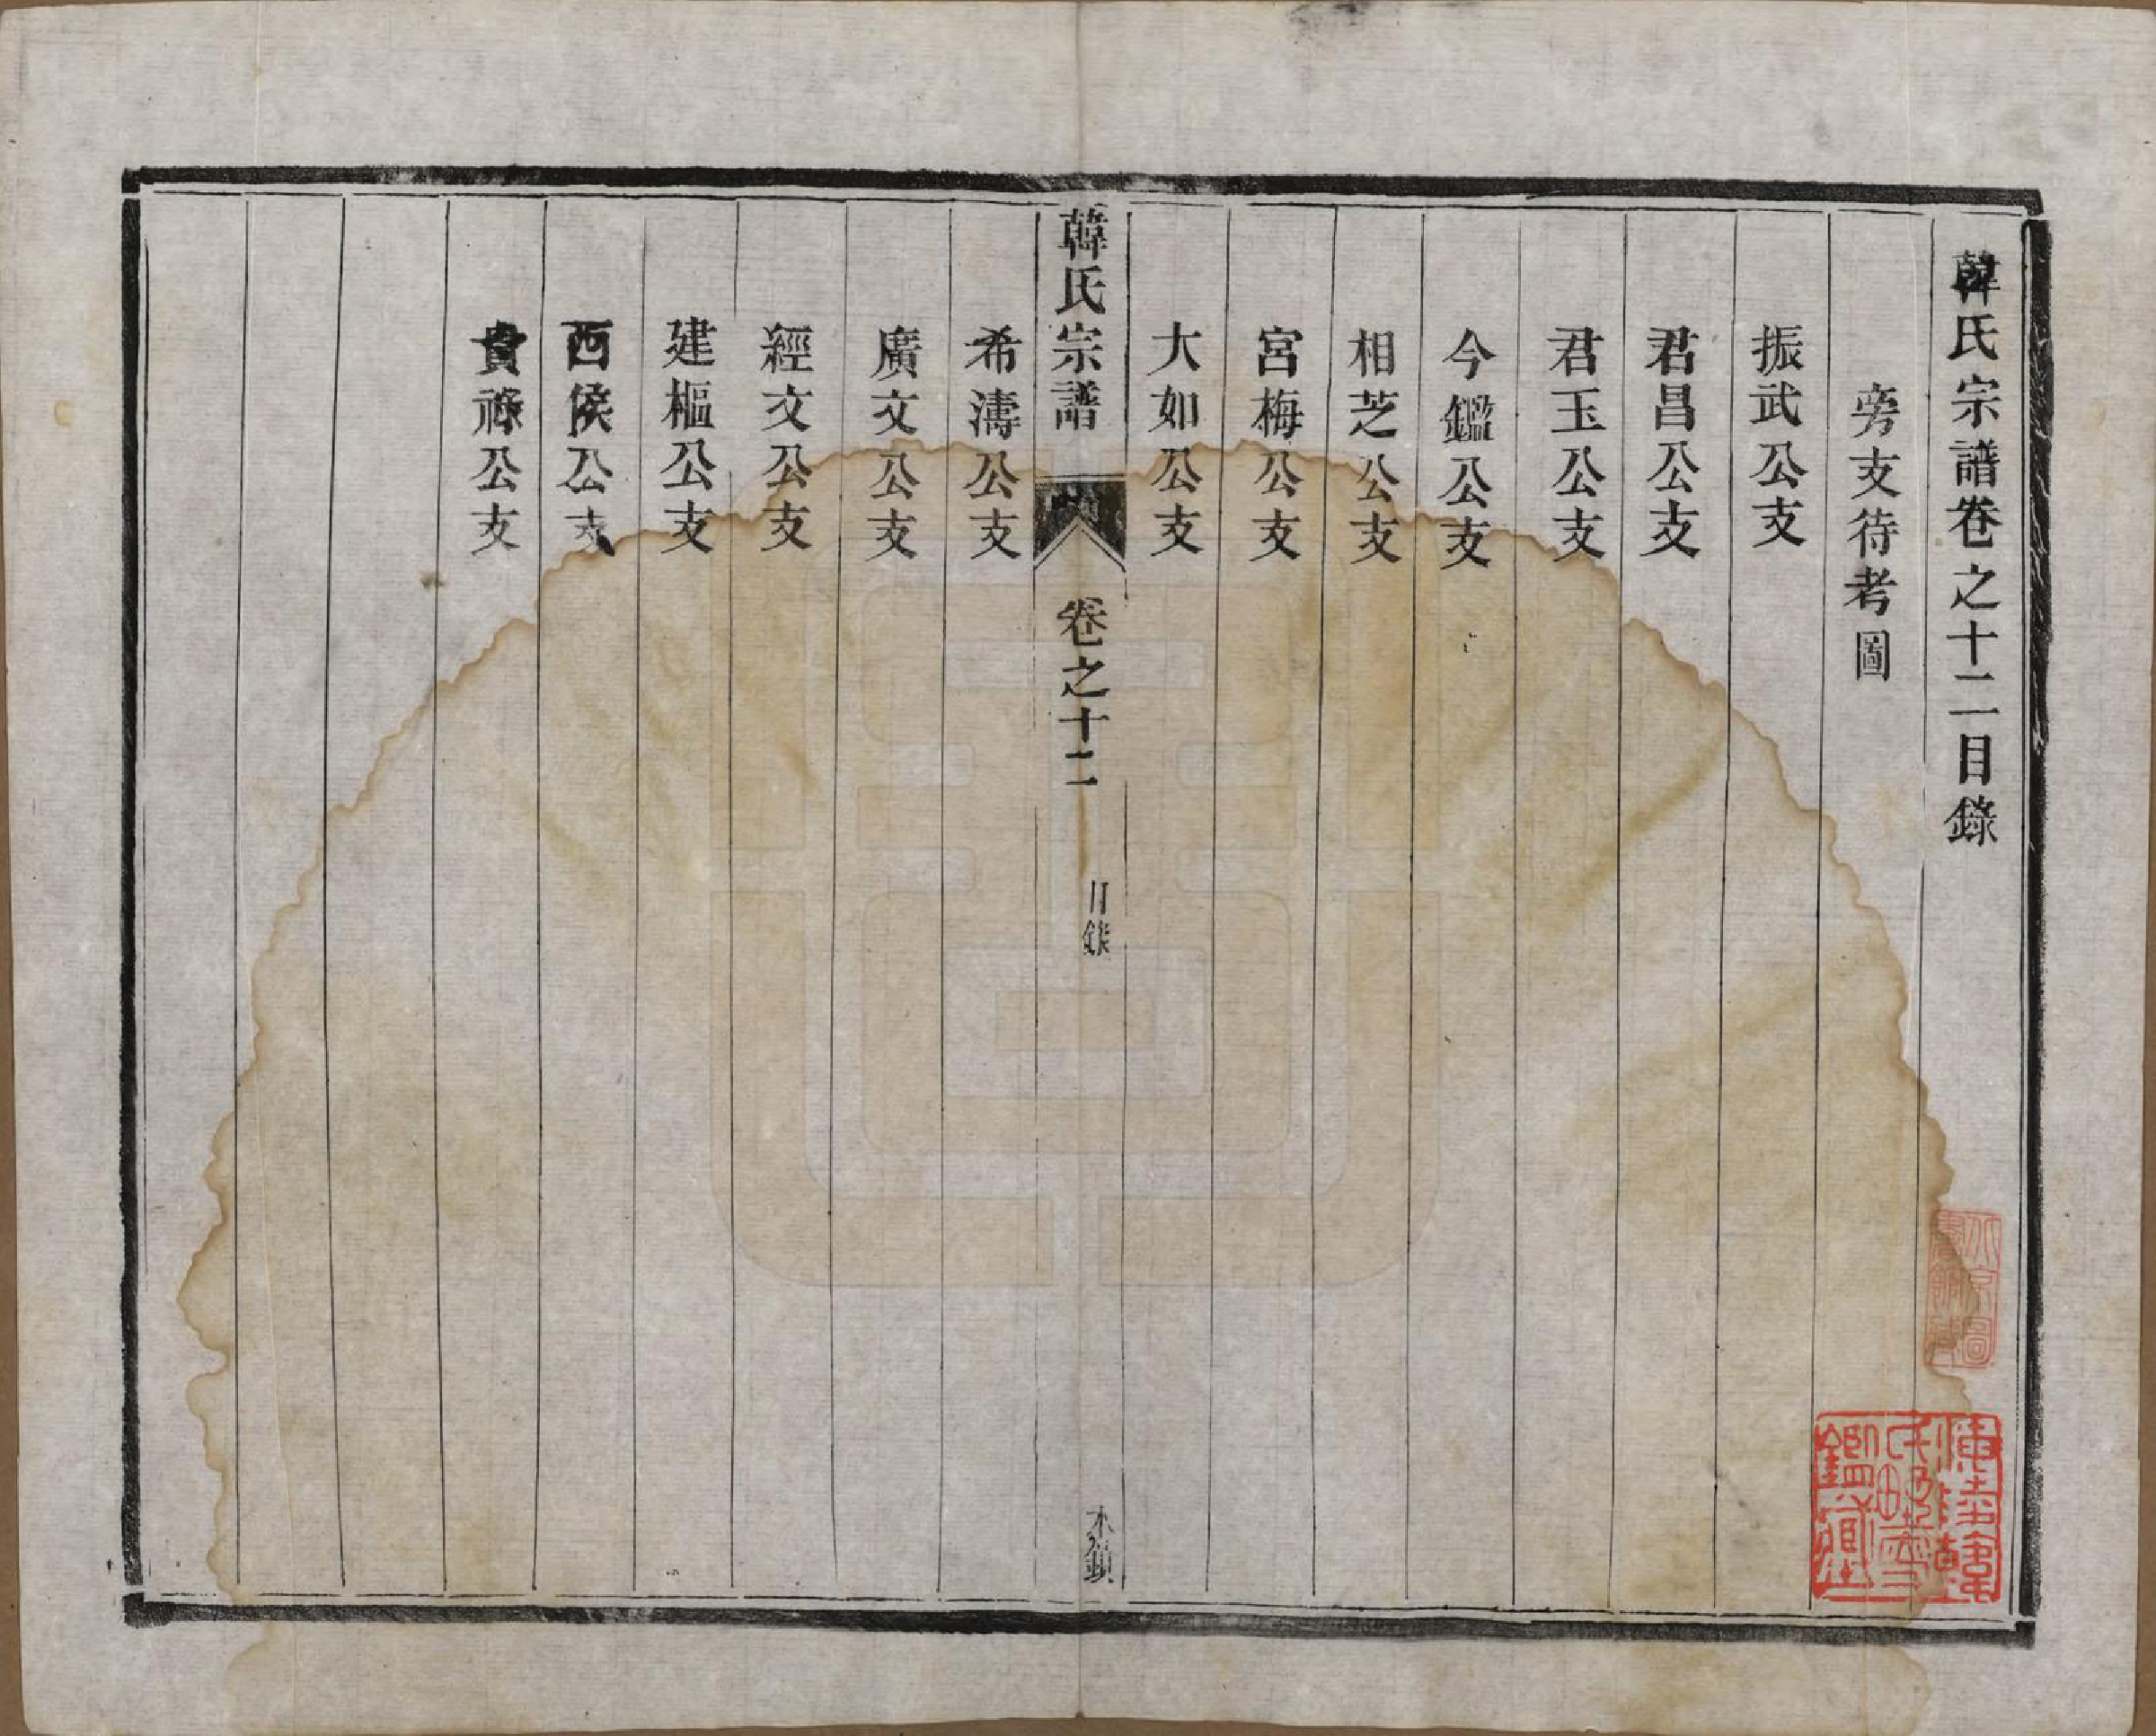 韓氏宗譜卷之十二目錄
旁支待考圖
振武公支
君昌公支
君玉公支
今鑑公支
相芝公支
宮梅公支
大如公支
韓氏宗譜
卷之十二
目錄
希濤公支
廣文公支
經文公支
建樞公支
西侯公支
貴祿公支